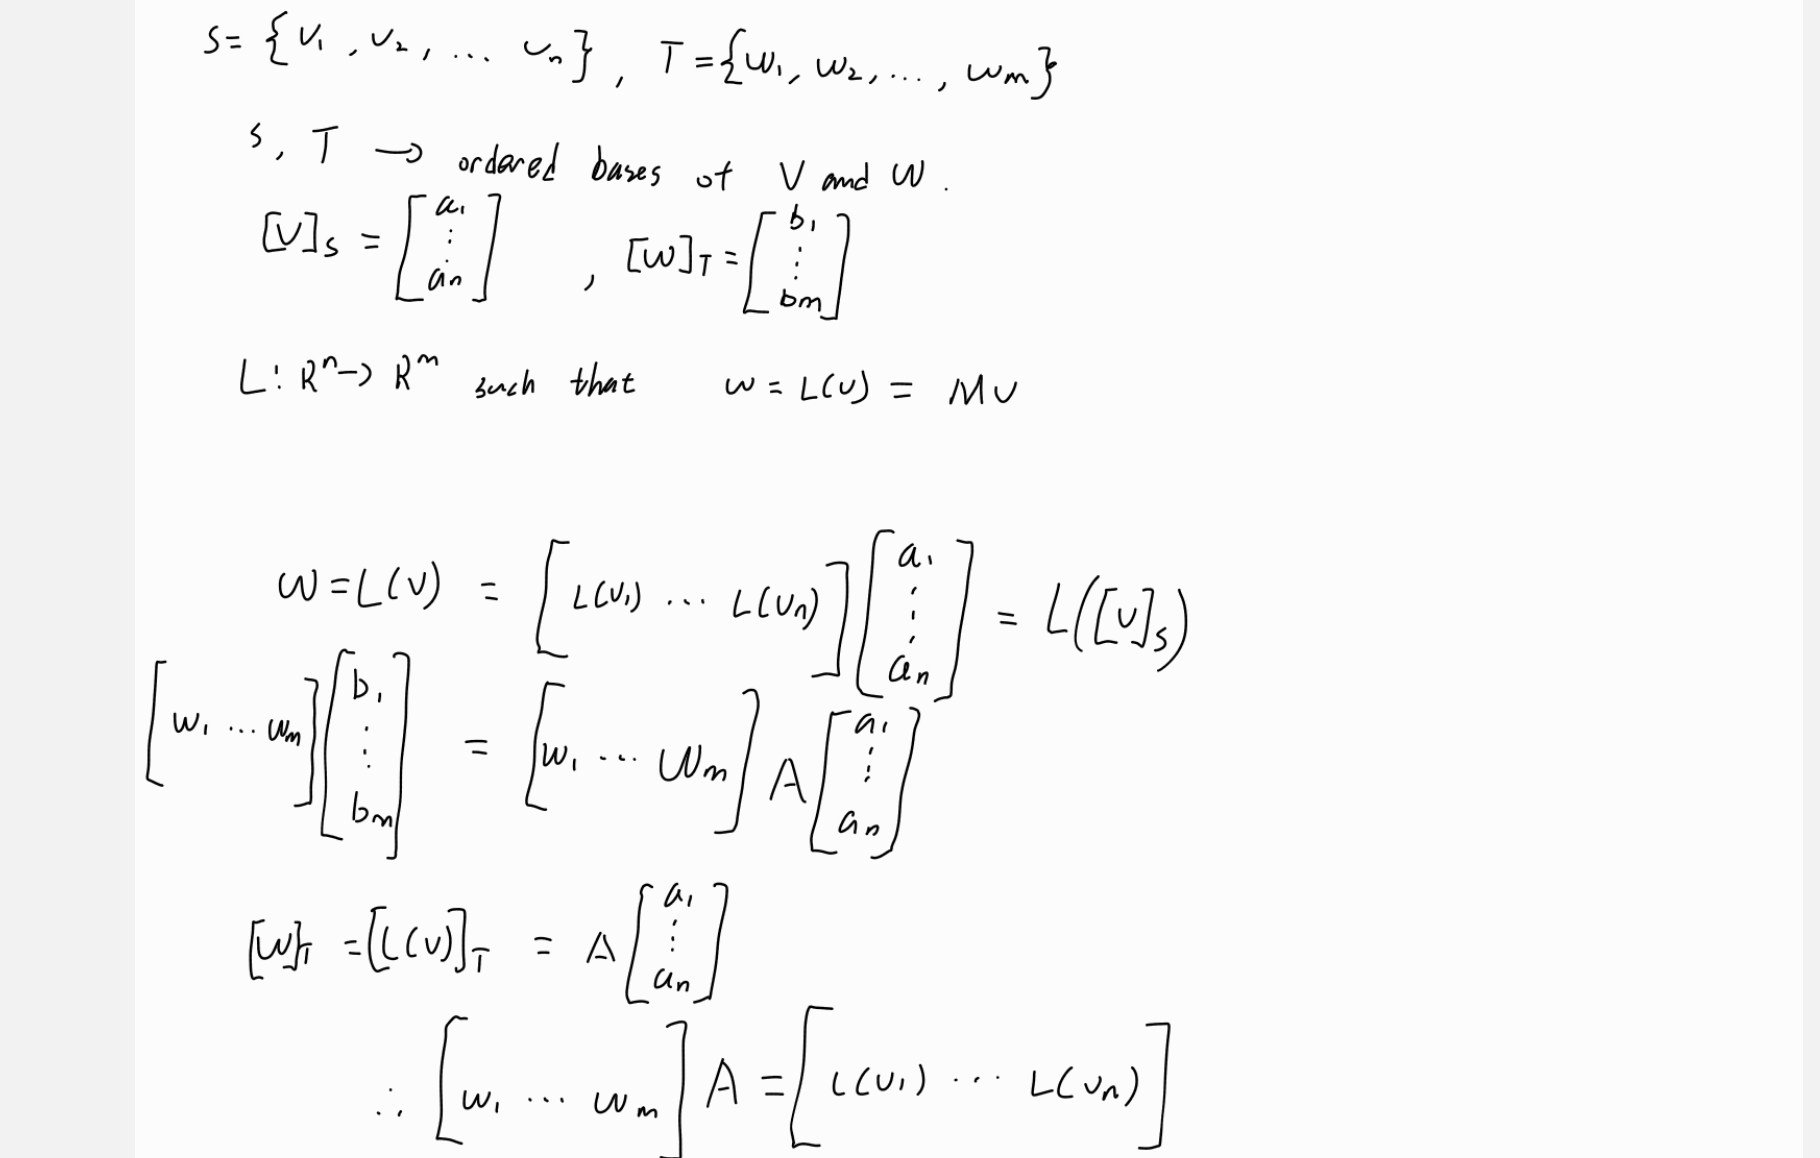 S= {v₁, v₂, ... vₙ}, T={w₁, w₂, ..., wₘ}
S, T → ordered bases of V and W.
[v]_S = [a₁ ⋮ aₙ], [w]_T = [b₁ ⋮ bm]
L: Rⁿ → Rᵐ such that w = L(v) = Mv
w = L(v) = [L(v₁) ... L(vₙ)] [a₁ ⋮ aₙ] = L([v]_S)
[w₁ ... wₘ] [b₁ ⋮ bm] = [w₁ ... wₘ] A [a₁ ⋮ aₙ]
[w]_T = [L(v)]_T = A [a₁ ⋮ aₙ]
∴ [w₁ ... wₘ] A = [L(v₁) ... L(vₙ)]